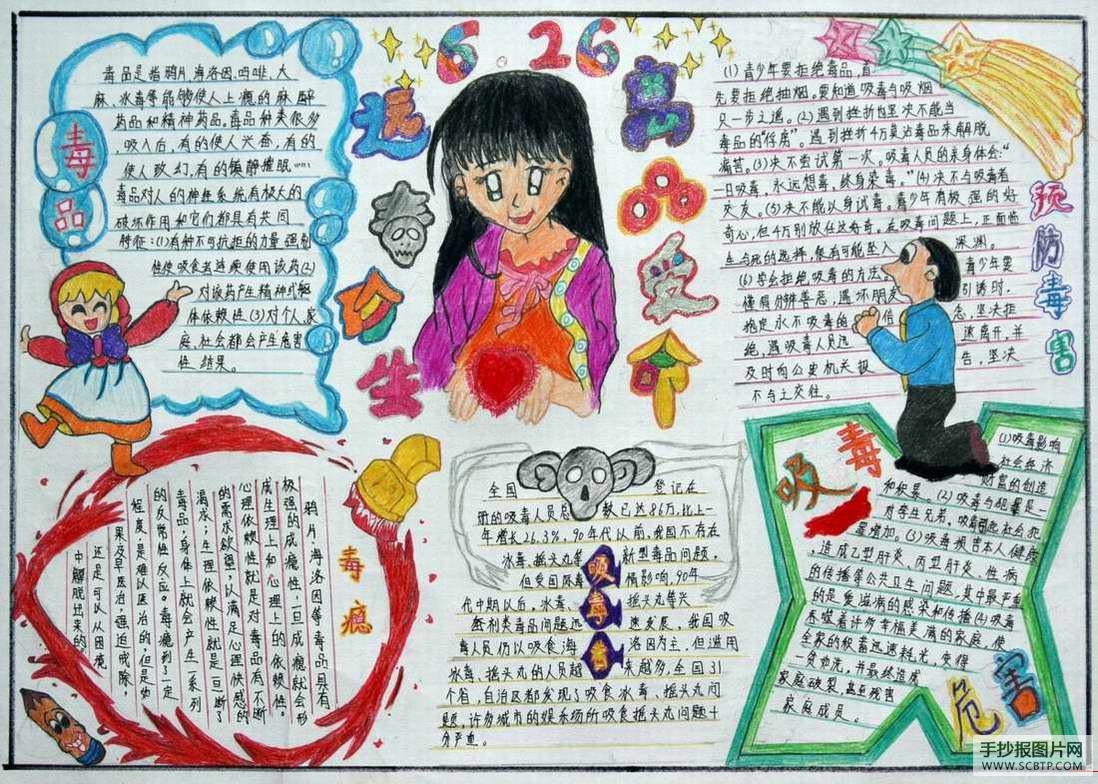 6.26
远
珍
生
离
品
爱
命
毒品
毒品是指鸦片,海洛因,吗啡,大
麻、冰毒等能够使人上瘾的麻醉
药品和精神药品。毒品种类很多
吸入后,有的使人兴奋,有的
使人致幻,有的镇静催眠……
毒品对人的神经系统有极大的
破坏作用和它们都具有共同
特征:(1)有种不可抗拒的力量强制
性使吸食者连续使用该药(2)
对该药产生精神或躯
体依赖性(3)对个人,家
庭,社会都会产生危害
性结果。
预防毒害
(1)青少年要拒绝毒品,首
先要拒绝抽烟。要知道吸毒与吸烟
只一步之遥。(2)遇到挫折也坚决不能当
毒品的“俘虏”。遇到挫折千万莫沾毒品来解脱
痛苦。(3)决不尝试第一次。吸毒人员的亲身体会:“
一日吸毒,永远想毒,终身染毒。”(4)决不与吸毒者
交友。(5)决不能以身试毒。青少年有极强的好
奇心,但千万别放任这好奇。在吸毒问题上,正面临
生与死的选择,很有可能坠入深渊。
(6)学会拒绝吸毒的方法青少年要
懂得分辨善恶,遇坏朋友引诱时,
抱定永不吸毒的信念,坚决拒
绝,遇吸毒人员迅速离开,并
及时向公安机关报告,坚决
不与之交往。
毒瘾
鸦片,海洛因等毒品具有
极强的成瘾性,一旦成瘾就会形
成生理上和心理上的依赖性。
心理依赖性就是对毒品有不断
的需求欲望,以满足心理快感的
渴求;生理依赖性就是一旦断了
毒品,身体上就会产生一系列
的反常性反应。毒瘾到了一定
程度,是难以医治的,但是如
果及早医治,强迫戒除,
还是可以从困境
中解脱出来的。
吸毒者
全国登记在
册的吸毒人员总数已达86万,比上一
年增长26.3%,90年代以前,我国不存在
冰毒、摇头丸等新型毒品问题,
但受国际毒情影响,90年
代中期以后,冰毒、摇头丸等兴
奋剂类毒品问题迅速发展,我国吸
毒人员仍以吸食海洛因为主,但滥用
冰毒、摇头丸的人员越来越多,全国31
个省,自治区都发现了吸食冰毒、摇头丸问
题,许多城市的娱乐场所吸食摇头丸问题十
分严重。
吸毒
危害
(1)吸毒影响
社会经济
财富的创造
和积累。(2)吸毒与犯罪是一
对孪生兄弟,吸毒引起社会犯
罪增加。(3)吸毒损害本人健康
,造成乙型肝炎、丙型肝炎、性病
的传播等公共卫生问题,其中最严重
的是爱滋病的感染和传播(4)吸毒
吞噬着许多幸福美满的家庭,使
全家的积蓄迅速耗光,变得
一贫如洗,并最终造成
家庭破裂,甚至残害
家庭成员。
手抄报图片网
WWW.SCBTP.COM